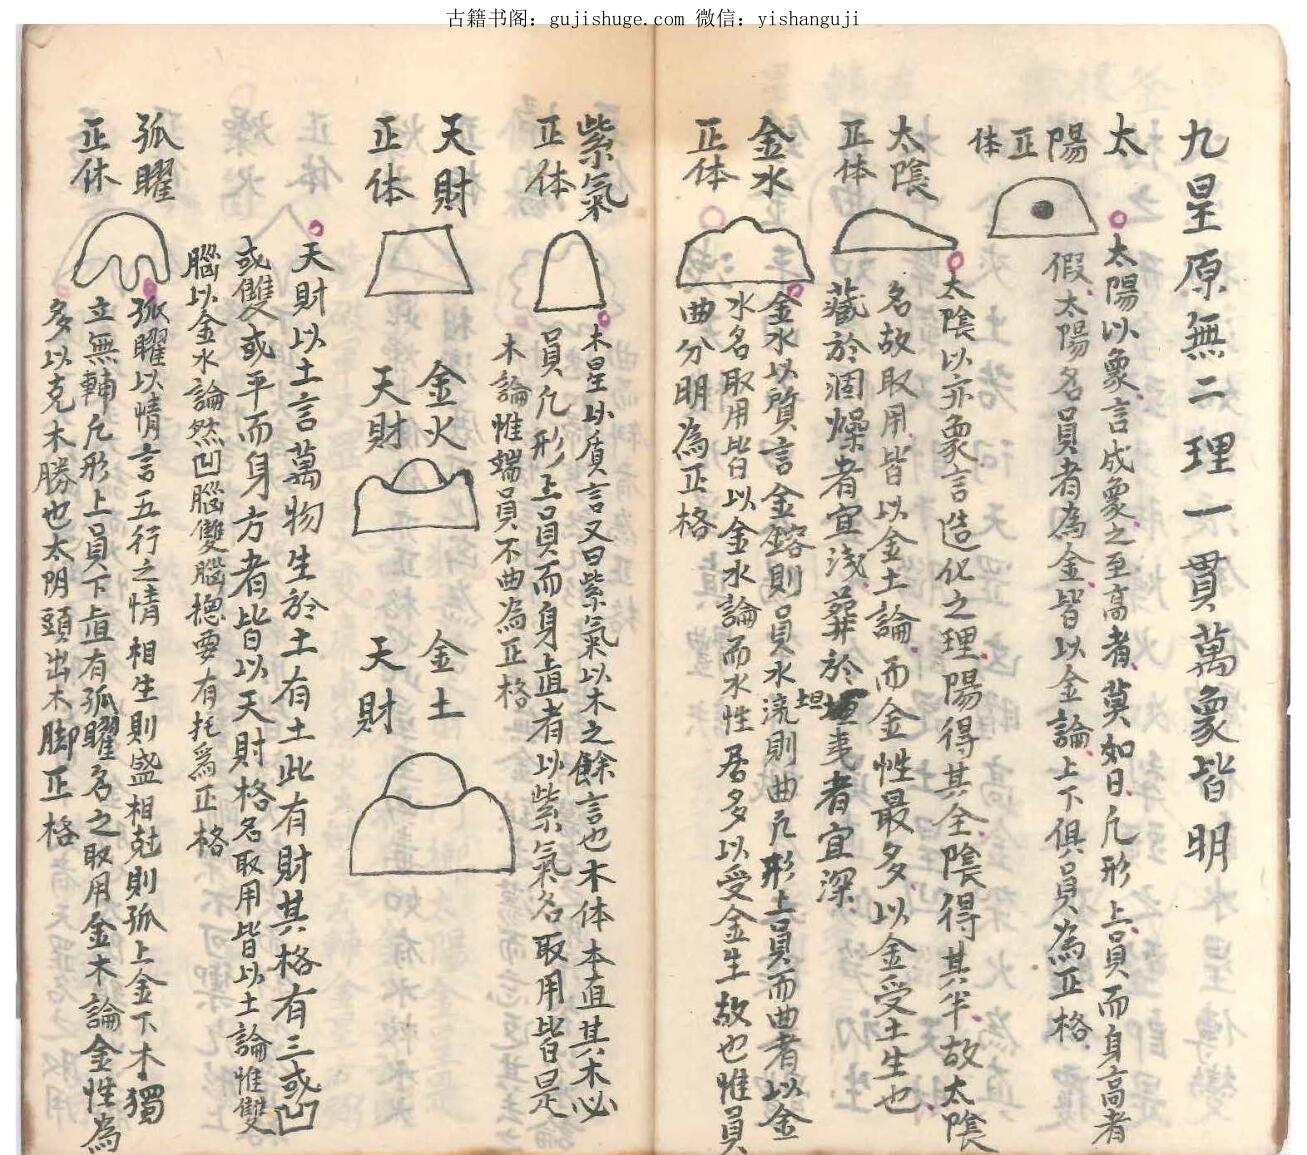 古籍书阁：gujishuge.com 微信：yishanguji
九星原無二理一貫萬象皆明
太陽正体
太陽以象言成象之至高者莫如日凢形上員而身高者
假太陽名員者為金皆以金論上下俱員為正格
太陰正体
太陰以亦象言造化之理陽得其全陰得其半故太陰
名故取用皆以金土論而金性最多以金受土生也
藏於涸燥者宜浅葬於坦夷者宜深
金水正体
金水以質言金鎔則員水流則曲凢形上員而曲者以金
水名取用皆以金水論而水性居多以受金生故也惟員
曲分明為正格
紫氣正体
木星以质言又曰紫氣以木之餘言也木体本直其木必
員凢形上員而身直者以紫氣名取用皆是
木論惟端員不曲為正格
天財正体
金火天財
金土天財
天財以土言萬物生於土有土此有財其格有三或凹
或雙或平而身方者皆以天財格名取用皆以土論惟雙
腦以金水論然凹腦雙腦揔要有托為正格
孤曜正体
孤曜以情言五行之情相生則盛相尅則孤上金下木獨
立無輔凢形上員下直有孤曜名之取用金木論金性為
多以克木勝也太阴頭出木脚正格